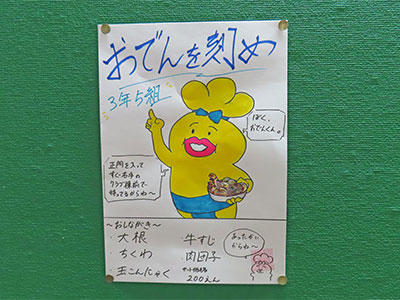 おでんを刻め
3年5組
ぼく、
おでんくん。
正門を入って
すぐ右手の
クラブ棟前で
待ってるからね〜
〜おしながき〜
・大根
・ちくわ
・玉こんにゃく
・牛すじ
・肉団子
200えん
あったかい
からね〜